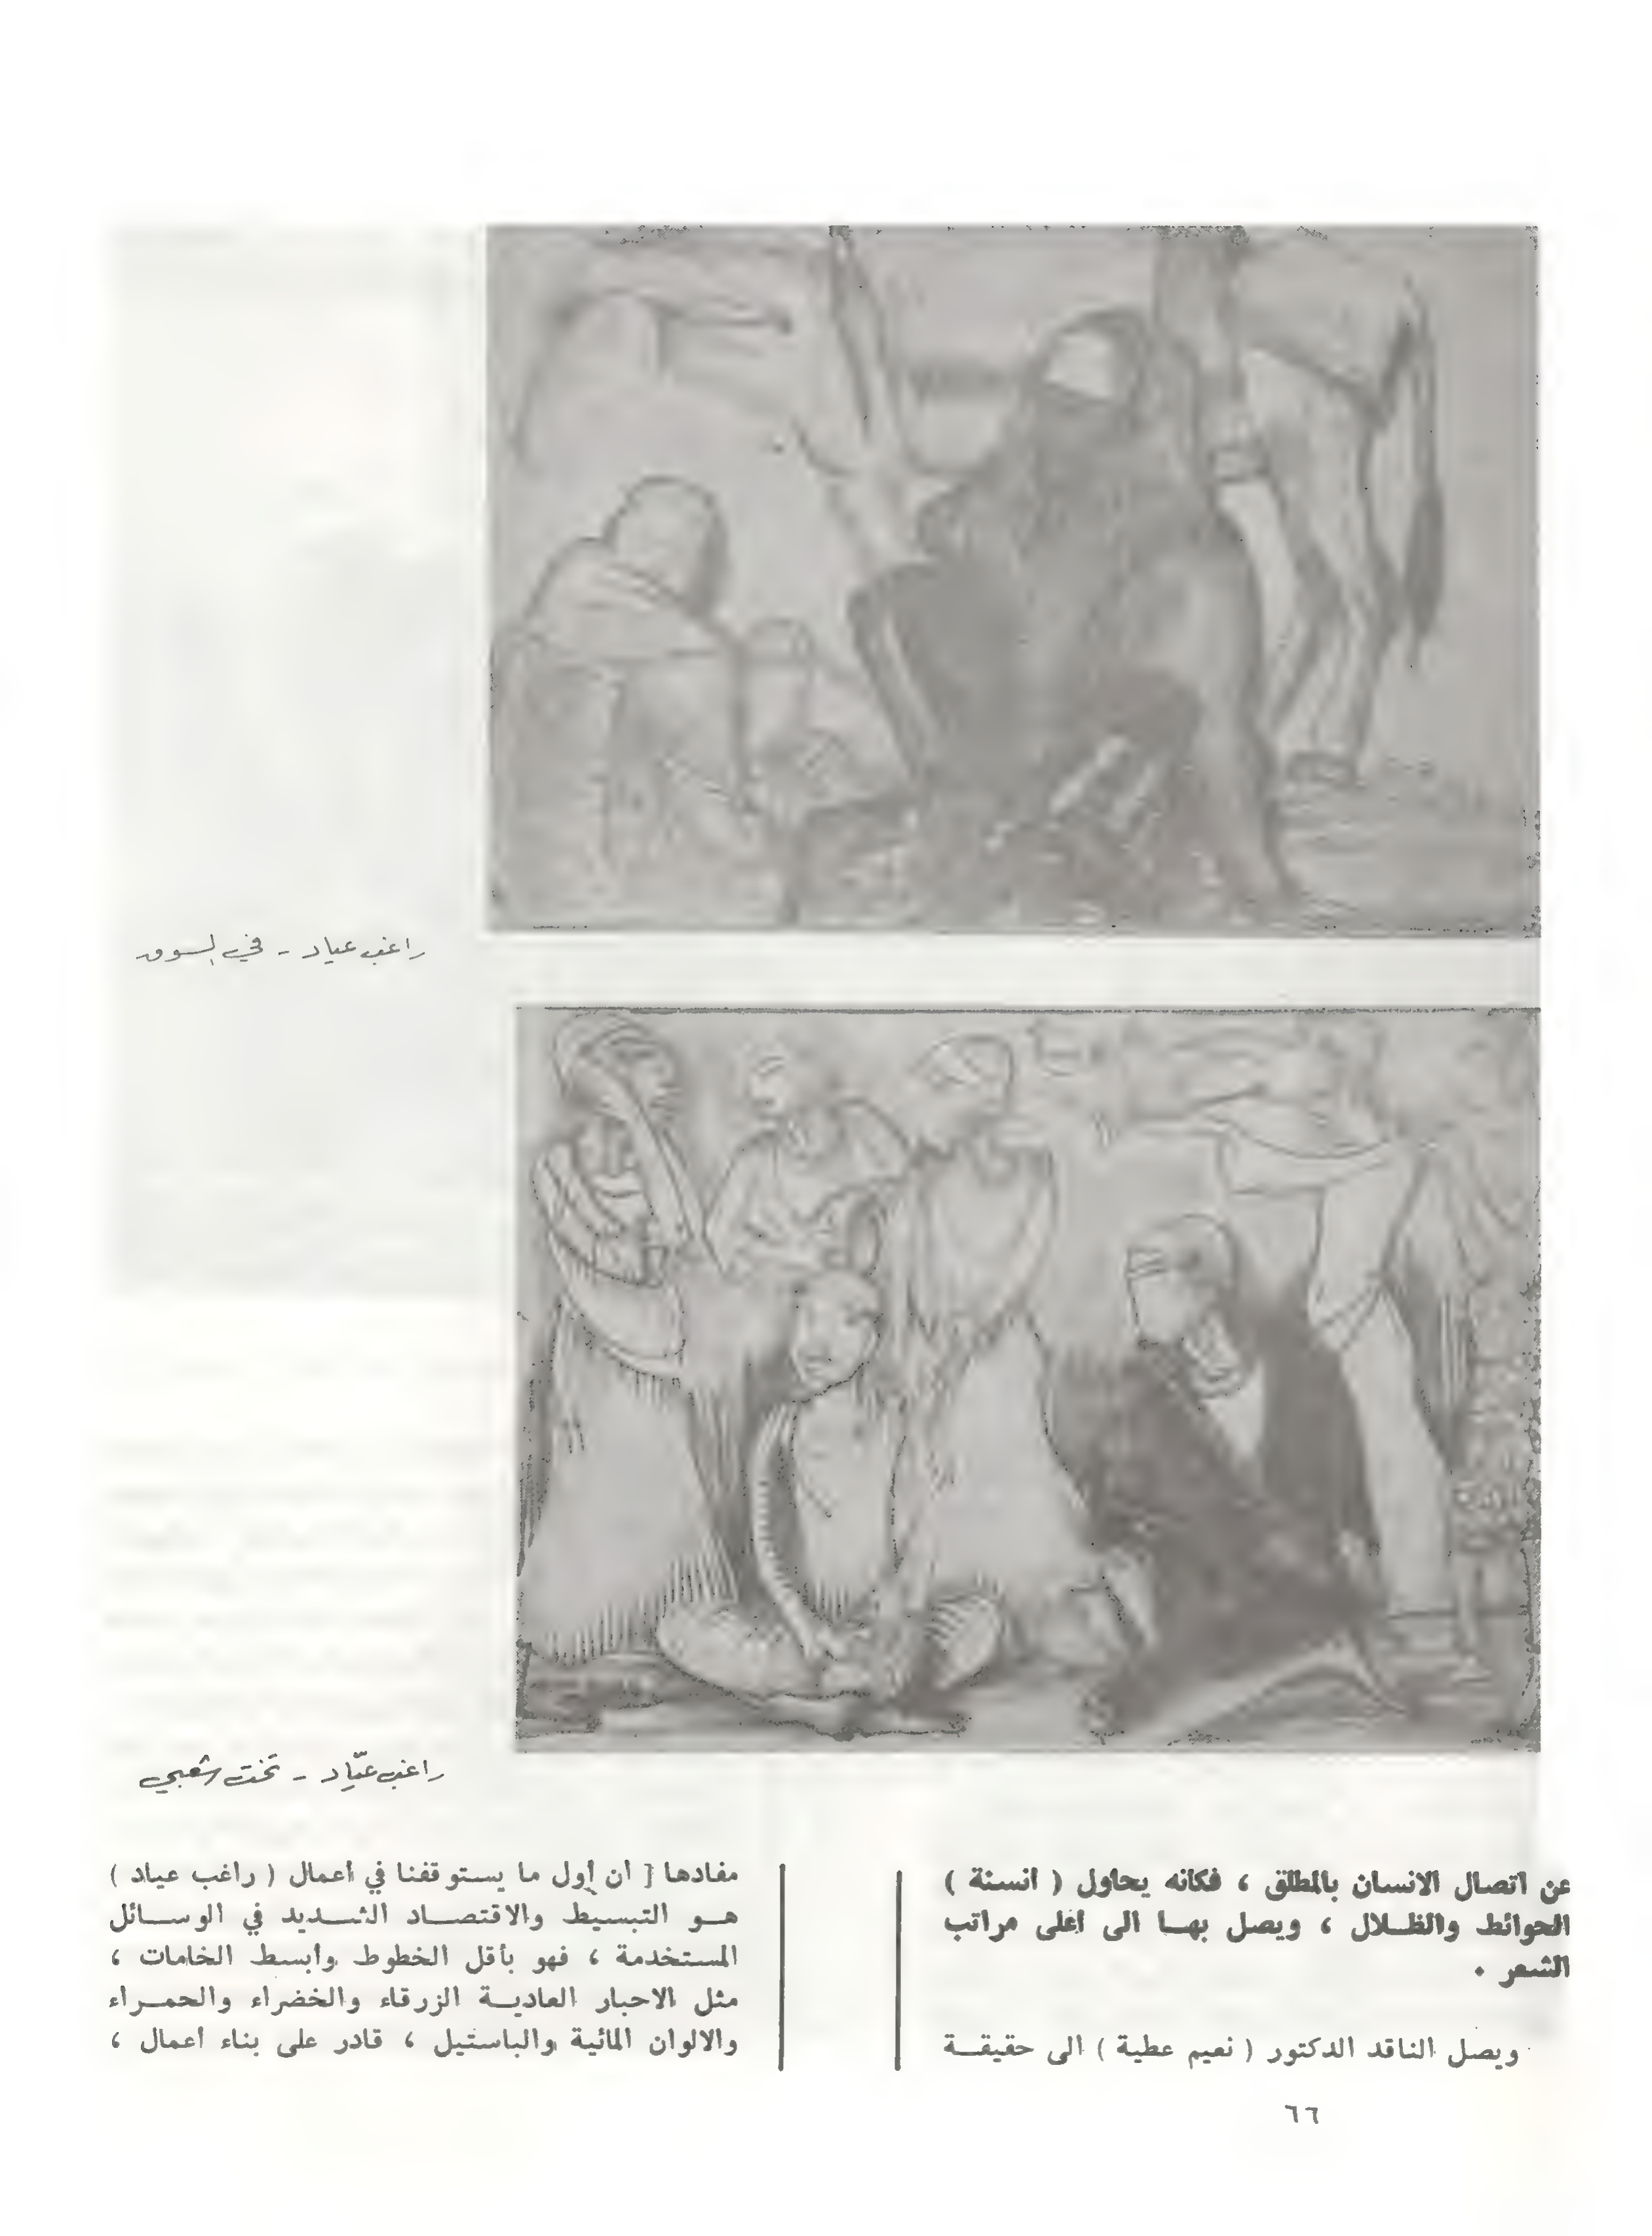 راغب عياد - في السوق
راغب عيّاد - تخت شعبي
عن اتصال الانسان بالمطلق ، فكانه يحاول ( انسنة )
الحوائط والظــلال ، ويصل بهــا الى أعلى مراتب
الشعر .
ويصل الناقد الدكتور ( نعيم عطية ) الى حقيقــة
مفادها [ أن أول ما يستوقفنا في أعمال ( راغب عياد )
هــو التبسيط والاقتصــاد الشــديد في الوســائل
المستخدمة ، فهو بأقل الخطوط وأبسط الخامات ،
مثل الاحبار العاديــة الزرقاء والخضراء والحمــراء
والالوان المائية والباستيل ، قادر على بناء أعمال ،
٦٦